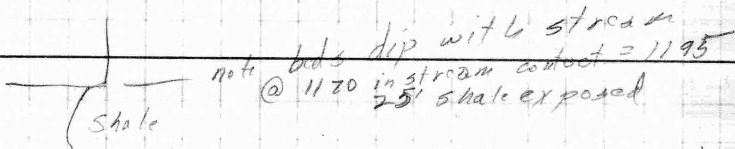 note beds dip with stream
@ 1170 in stream contact = 1195
25' shale exposed
Shale